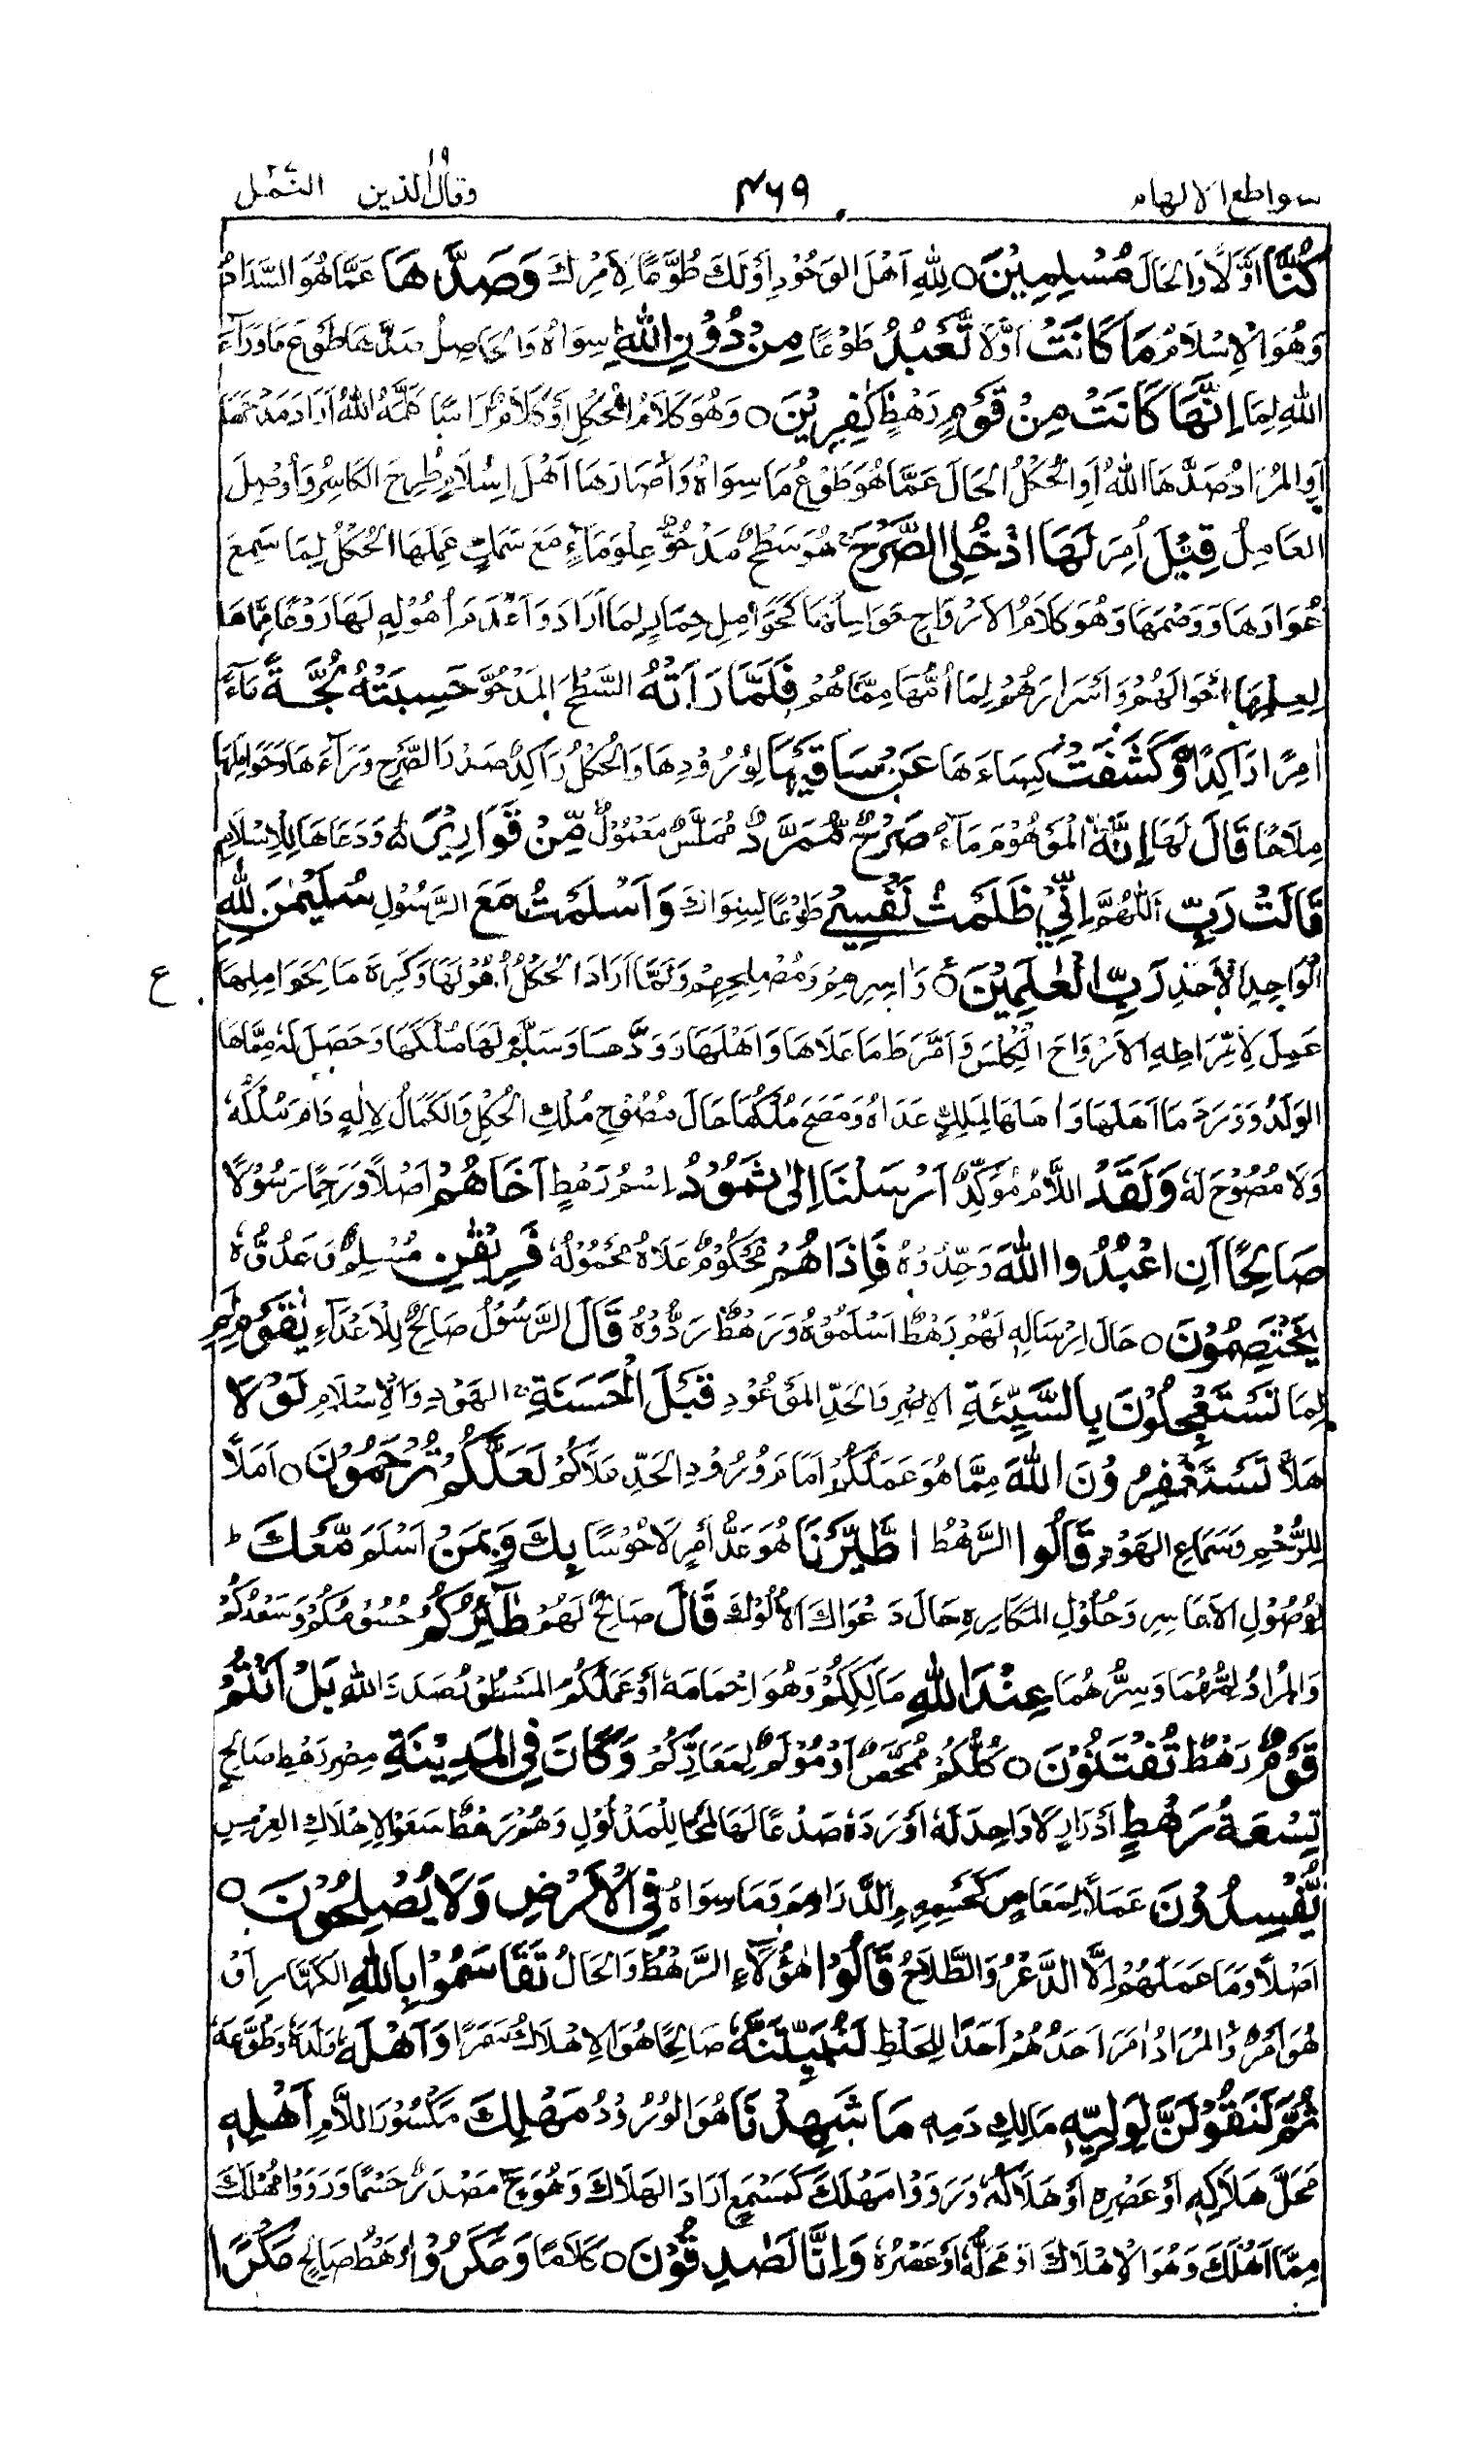 سواطع الالهام ۴۶۹ وقال الذین ۱۹ النمل ۲۷
كُنَّا اَوَّلًا وَالحَالَ مُسْلِمِيْنَ ○ لِلّٰهِ اَهْلَ الوَحُوْدِ اَوْلَكَ طُوَّعًا لِاَمْرِكَ وَصَدَّهَا عَمَّا هُوَ السَّدَادُ
وَهُوَ الْاِسْلَامُ مَا كَانَتْ اَوَّلًا تَّعْبُدُ طَوْعًا مِنْ دُوْنِ اللّٰهِ سِوَاهُ وَالحَاصِلُ صَدَّهَا طَوْعَ مَا وَرَآءَ
اللّٰهِ لِمَا اِنَّهَا كَانَتْ مِنْ قَوْمٍ رَهْطٍ كٰفِرِيْنَ ○ وَهُوَ كَلَامُ الْحُكْلِ اَوْ كَلَامٌ رَاسًا كَلَّمَهُ اللّٰهُ اَرَادَ مَدْحَهَا
اَوِ المُرَادُ صَدَّهَا اللّٰهُ اَوِ الْحُكْلُ الحَالَ عَمَّا هُوَ طَوْعُ مَا سِوَاهُ وَاَصَارَهَا اَهْلَ اِسْلَامٍ طُرِحَ الكَاسِرُ وَاُوْصِلَ
العَامِلُ قِيْلَ اُمِرَ لَهَا ادْخُلِى الصَّرْحَ هُوَ سَطْحٌ مَدْحُوٌّ عِلْوَ مَآءٍ مَعَ سَمَكٍ عَمِلَهَا الْحُكْلُ لِمَا سَمِعَ
عُوَارَهَا وَوَصْمَهَا وَهُوَ كَلَامُ الْاَرْوَاحِ حَوَامِلُهَا كَحَوَامِلِ حِمَارٍ لِمَا اَرَادَ وَاَعْدَمَ اُهُوْلِهِ لَهَا رَوْعًا مِمَّا هَا
لِعِلْمِهَا اَحْوَالَهُمْ وَاَسْرَارَهُمْ لِمَا اُمُّهَا مِمَّا هُمْ فَلَمَّا رَاَتْهُ السَّطْحَ المَدْحُوَّ حَسِبَتْهُ لُجَّةً مَآءً
اِمِرًا رَاكِدًا وَّكَشَفَتْ كِسَاءَهَا عَنْ سَاقَيْهَا لِوُرُوْدِهَا وَالْحُكْلُ رَاكِدٌ صَدْرَ الصَّرْحِ وَرَآءَهَا وَحَوَامِلَهَا
مِلَاحًا قَالَ لَهَا اِنَّهٗ الْمَوْهُوْمَ مَآءً صَرْحٌ مُّمَرَّدٌ مُمَلَّسٌ مَعْمُوْلٌ مِّنْ قَوَارِيْرَ وَدَعَاهَا لِلْاِسْلَامِ
قَالَتْ رَبِّ اَللّٰهُمَّ اِنِّيْ ظَلَمْتُ نَفْسِيْ طَوْعًا لِسِوَاكَ وَاَسْلَمْتُ مَعَ الرَّسُوْلِ سُلَيْمٰنَ لِلّٰهِ
الْوَاحِدِ الْاَحَدِ رَبِّ الْعٰلَمِيْنَ ○ وَاٰسِرِهِمْ وَمُصْلِحِهِمْ وَلَمَّا اَرَادَ الْحُكْلُ اُهُوْلَهَا وَكَرِهَ مَا لِحَوَامِلِهَا ع
عَمِلَ لِاَمْرَاطِهِ الْاَرْوَاحُ الْكِلْسَ وَاَمْرَطَ مَا عَلَاهَا وَاَهَلَهَا وَوَدَّهَا وَسَلَّمَ لَهَا مُلْكَهَا وَحَصَلَ لَهٗ مِمَّا هَا
الوَلَدُ وَوَرَدَ مَا اَهَلَهَا وَاَهَلَهَا لِمَلِكٍ عَدَاهُ وَمَصَحَ مُلْكُهَا حَالَ مُصُوْحِ مُلْكِ الحُكْلِ وَالكَمَالُ لِاِلٰهٍ دَامَ مُلْكُهٗ
وَلَا مُصُوْحَ لَهٗ وَلَقَدْ اللَّامُ مُؤَكِّدٌ اَرْسَلْنَا اِلٰى ثَمُوْدَ اِسْمُ رَهْطٍ اَخَاهُمْ اَصْلًا وَرَحِمًا رَسُوْلًا
صَالِحًا اَنِ اعْبُدُوا اللّٰهَ وَحِّدُوْهُ فَاِذَا هُمْ مَحْكُوْمٌ عَلَاهُ مَحْمُوْلُهٗ فَرِيْقٰنِ مُسْلِمٌ وَعَدُوٌّ
يَخْتَصِمُوْنَ ○ حَالَ اِرْسَالِهٖ لَهُمْ رَهْطٌ اَسْلَمُوْهُ وَرَهْطٌ رَدُّوْهُ قَالَ الرَّسُوْلُ صَالِحٌ لِلْاَعْدَآءِ يٰقَوْمِ لِمَ
لِمَا تَسْتَعْجِلُوْنَ بِالسَّيِّئَةِ الْاِصْرِ وَالحَدِّ المَوْعُوْدِ قَبْلَ الْحَسَنَةِ الهَوْدِ وَالْاِسْلَامِ لَوْلَا
هَلَّا تَسْتَغْفِرُوْنَ اللّٰهَ مِمَّا هُوَ عَمَلُكُمْ اَمَامَ وُرُوْدِ الحَدِّ مَلَاَكُمْ لَعَلَّكُمْ تُرْحَمُوْنَ ○ اَمَلًا
لِلرُّحْمِ وَسَمَاعِ الهَوْدِ قَالُوا الرَّهْطُ اطَّيَّرْنَا هُوَ عَدُّ اَمْرٍ لَاحُوْسًا بِكَ وَبِمَنْ اَسْلَمَ مَّعَكَ ط
لِوُصُوْلِ الْاَعَاسِرِ وَحُلُوْلِ المَكَارِهِ حَالَ دَعْوَاكَ الْاُلُوْكَ قَالَ صَالِحٌ لَهُمْ طٰٓئِرُكُمْ حُسُوْمُكُمْ وَسَعْدُكُمْ
وَالمُرَادُ لِمُّهُمَا وَسِرُّهُمَا عِنْدَ اللّٰهِ مَالِكِكُمْ وَهُوَ اِحْمَامُهٗ اَوْ عَمَلُكُمُ المَسْطُوْرُ صَدَدَ اللّٰهِ بَلْ اَنْتُمْ
قَوْمٌ رَهْطٌ تُفْتَنُوْنَ ○ كُلُّكُمْ مُمَحَّصٌ اَوْ مُوْلَمٌ لِمَعَادِكُمْ وَكَانَ فِي الْمَدِيْنَةِ مِصْرِ رَهْطِ صَالِحٍ
تِسْعَةُ رَهْطٍ اَدْرَارٍ لَا وَاحِدَ لَهٗ اَوْرَدَهٗ صَدْعًا لَهَا لَمْحًا لِلْمَدْلُوْلِ وَهُمْ رَهْطٌ سَعَوْا لِاِهْلَاكِ العِرْمِسِ
يُّفْسِدُوْنَ عَمَلًا لِمَعَاصٍ كَحَسْمِهِمِ الدَّرَاهِمَ وَمَا سِوَاهُ فِي الْاَرْضِ وَلَا يُصْلِحُوْنَ ○
اَصْلًا وَمَا عَمَلُهُمْ اِلَّا الدَّعْرُ وَالطَّلَاحُ قَالُوْا هٰؤُلَاءِ الرَّهْطُ وَالحَالُ تَقَاسَمُوْا بِاللّٰهِ الكَهَّارِ اَوْ
هُوَ اَمْرٌ وَالمُرَادُ اَمَرَ اَحَدُهُمْ اَحَدًا لِلحَلْطِ لَنُبَيِّتَنَّهٗ صَالِحًا هُوَ الْاِهْلَاكُ سَمَرًا وَاَهْلَهٗ وَلَدَهٗ وَطُوَّعَهٗ
ثُمَّ لَنَقُوْلَنَّ لِوَلِيِّهٖ مَالِكِ دَمِهٖ مَا شَهِدْنَا هُوَ الوُرُوْدُ مَهْلِكَ مَكْسُوْرَ اللَّامِ اَهْلِهٖ
مَحَلَّ هَلَاكِهٖ اَوْ عَصْرِهٖ اَوْ هَلَاكَهٗ وَرَوَوْا مَهْلَكَ كَمَسْمَعٍ اَرَادَ الهَلَاكَ وَهُوَ ح مَصْدَرٌ حَسْمًا وَرَوَوْا مُهْلَكَ
مِمَّا اَهْلَكَ وَهُوَ الْاِهْلَاكُ اَوْ مَحَلُّهٗ اَوْ عَصْرُهٗ وَاِنَّا لَصٰدِقُوْنَ ○ كَلَامًا وَمَكَرُوْا رَهْطُ صَالِحٍ مَكْرًا